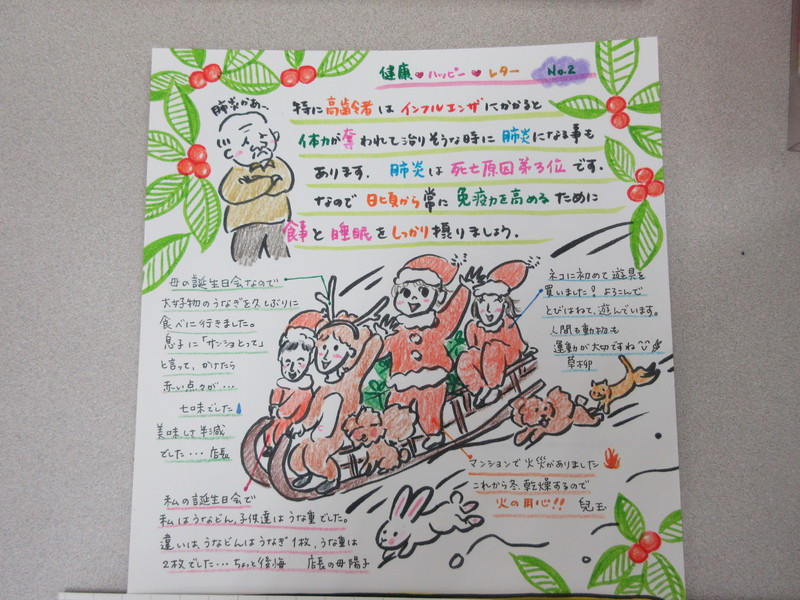 健康♥ハッピー♥レター No.2
肺炎かあ〜
特に高齢者はインフルエンザにかかると
体力が奪われて治りそうな時に肺炎になる事も
あります。肺炎は死亡原因第3位です。
なので日頃から常に免疫力を高めるために
食事と睡眠をしっかり摂りましょう。
母の誕生日会なので
大好物のうなぎを久しぶりに
食べに行きました。
息子に「サンショとって」
と言って、かけたら
赤い点々が・・・
七味でした
美味しさ半減
でした・・・ 店長
ネコに初めて遊具を
買いました！よろこんで
とびはねて、遊んでいます。
人間も動物も
運動が大切ですね
草柳
マンションで火災がありました
これから冬、乾燥するので
火の用心!! 兒玉
私の誕生日会で
私はうなどん、子供達はうな重でした。
違いは、うなどんはうなぎ1枚、うな重は
2枚でした・・・ちょっと後悔 店長の母陽子